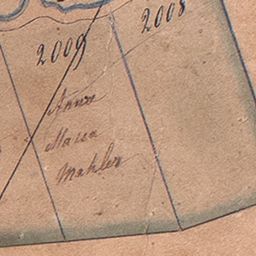 2009
2008
Anna
Maria
Mahler